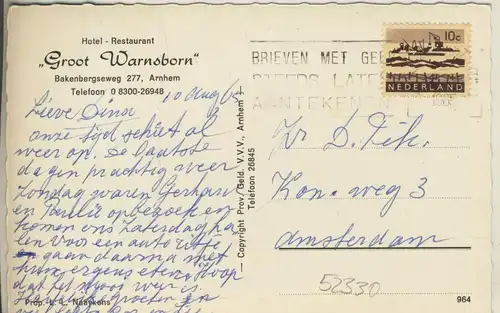 Hotel - Restaurant
„Groot Warnsborn"
Bakenbergseweg 277, Arnhem
Telefoon 0 8300-26948
10 Aug 65
Lieve Dina
onze tijd schiet al
weer op. De laatste
dagen prachtig weer
Zondag waren Gerhard
en op bezoek en
komen ons Zaterdag ha
len voor een auto ritje
en gaan daarna met
hun ergens eten. Hoop
dat het mooi weer is.
groeten en
Prop. L. L. Naaykens
— Copyright Prov./Geld. V.V.V., Arnhem —
Telefoon 26845
BRIEVEN MET GEL
STEEDS LATE
AANTEKENEN
10c
NEDERLAND
D. Dik.
Kon. weg 3
Amsterdam
52330
964